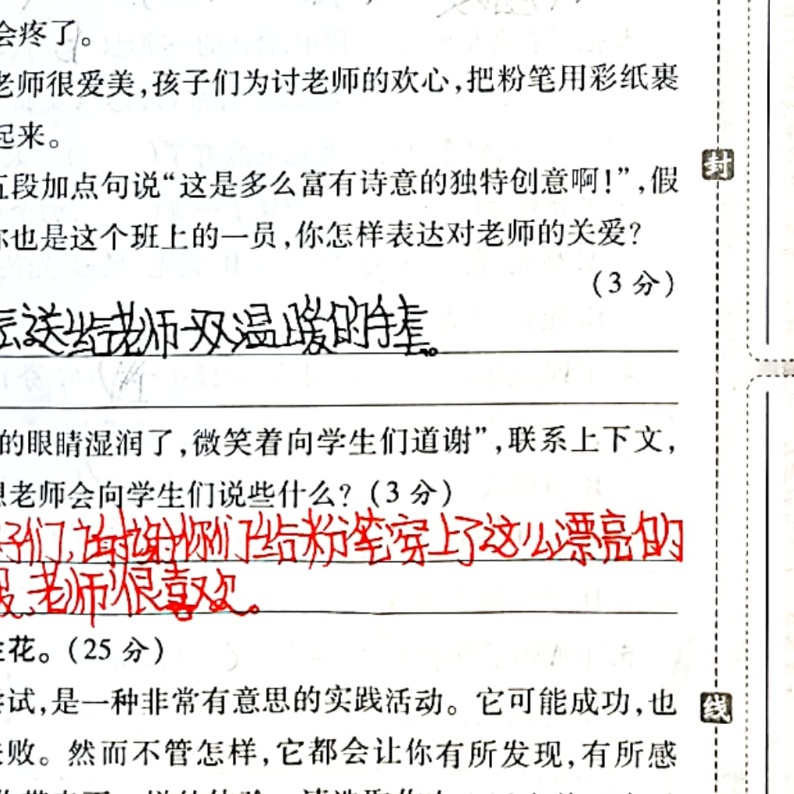 会疼了。
老师很爱美,孩子们为讨老师的欢心,把粉笔用彩纸裹
起来。
五段加点句说“这是多么富有诗意的独特创意啊!”,假
你也是这个班上的一员,你怎样表达对老师的关爱?
(3分)
送给老师一双温暖的手套。
的眼睛湿润了,微笑着向学生们道谢”,联系上下文,
想老师会向学生们说些什么?(3分)
子们,谢谢你们给粉笔穿上了这么漂亮的
老师很喜欢。
花。(25分)
尝试,是一种非常有意思的实践活动。它可能成功,也
失败。然而不管怎样,它都会让你有所发现,有所感
封
线